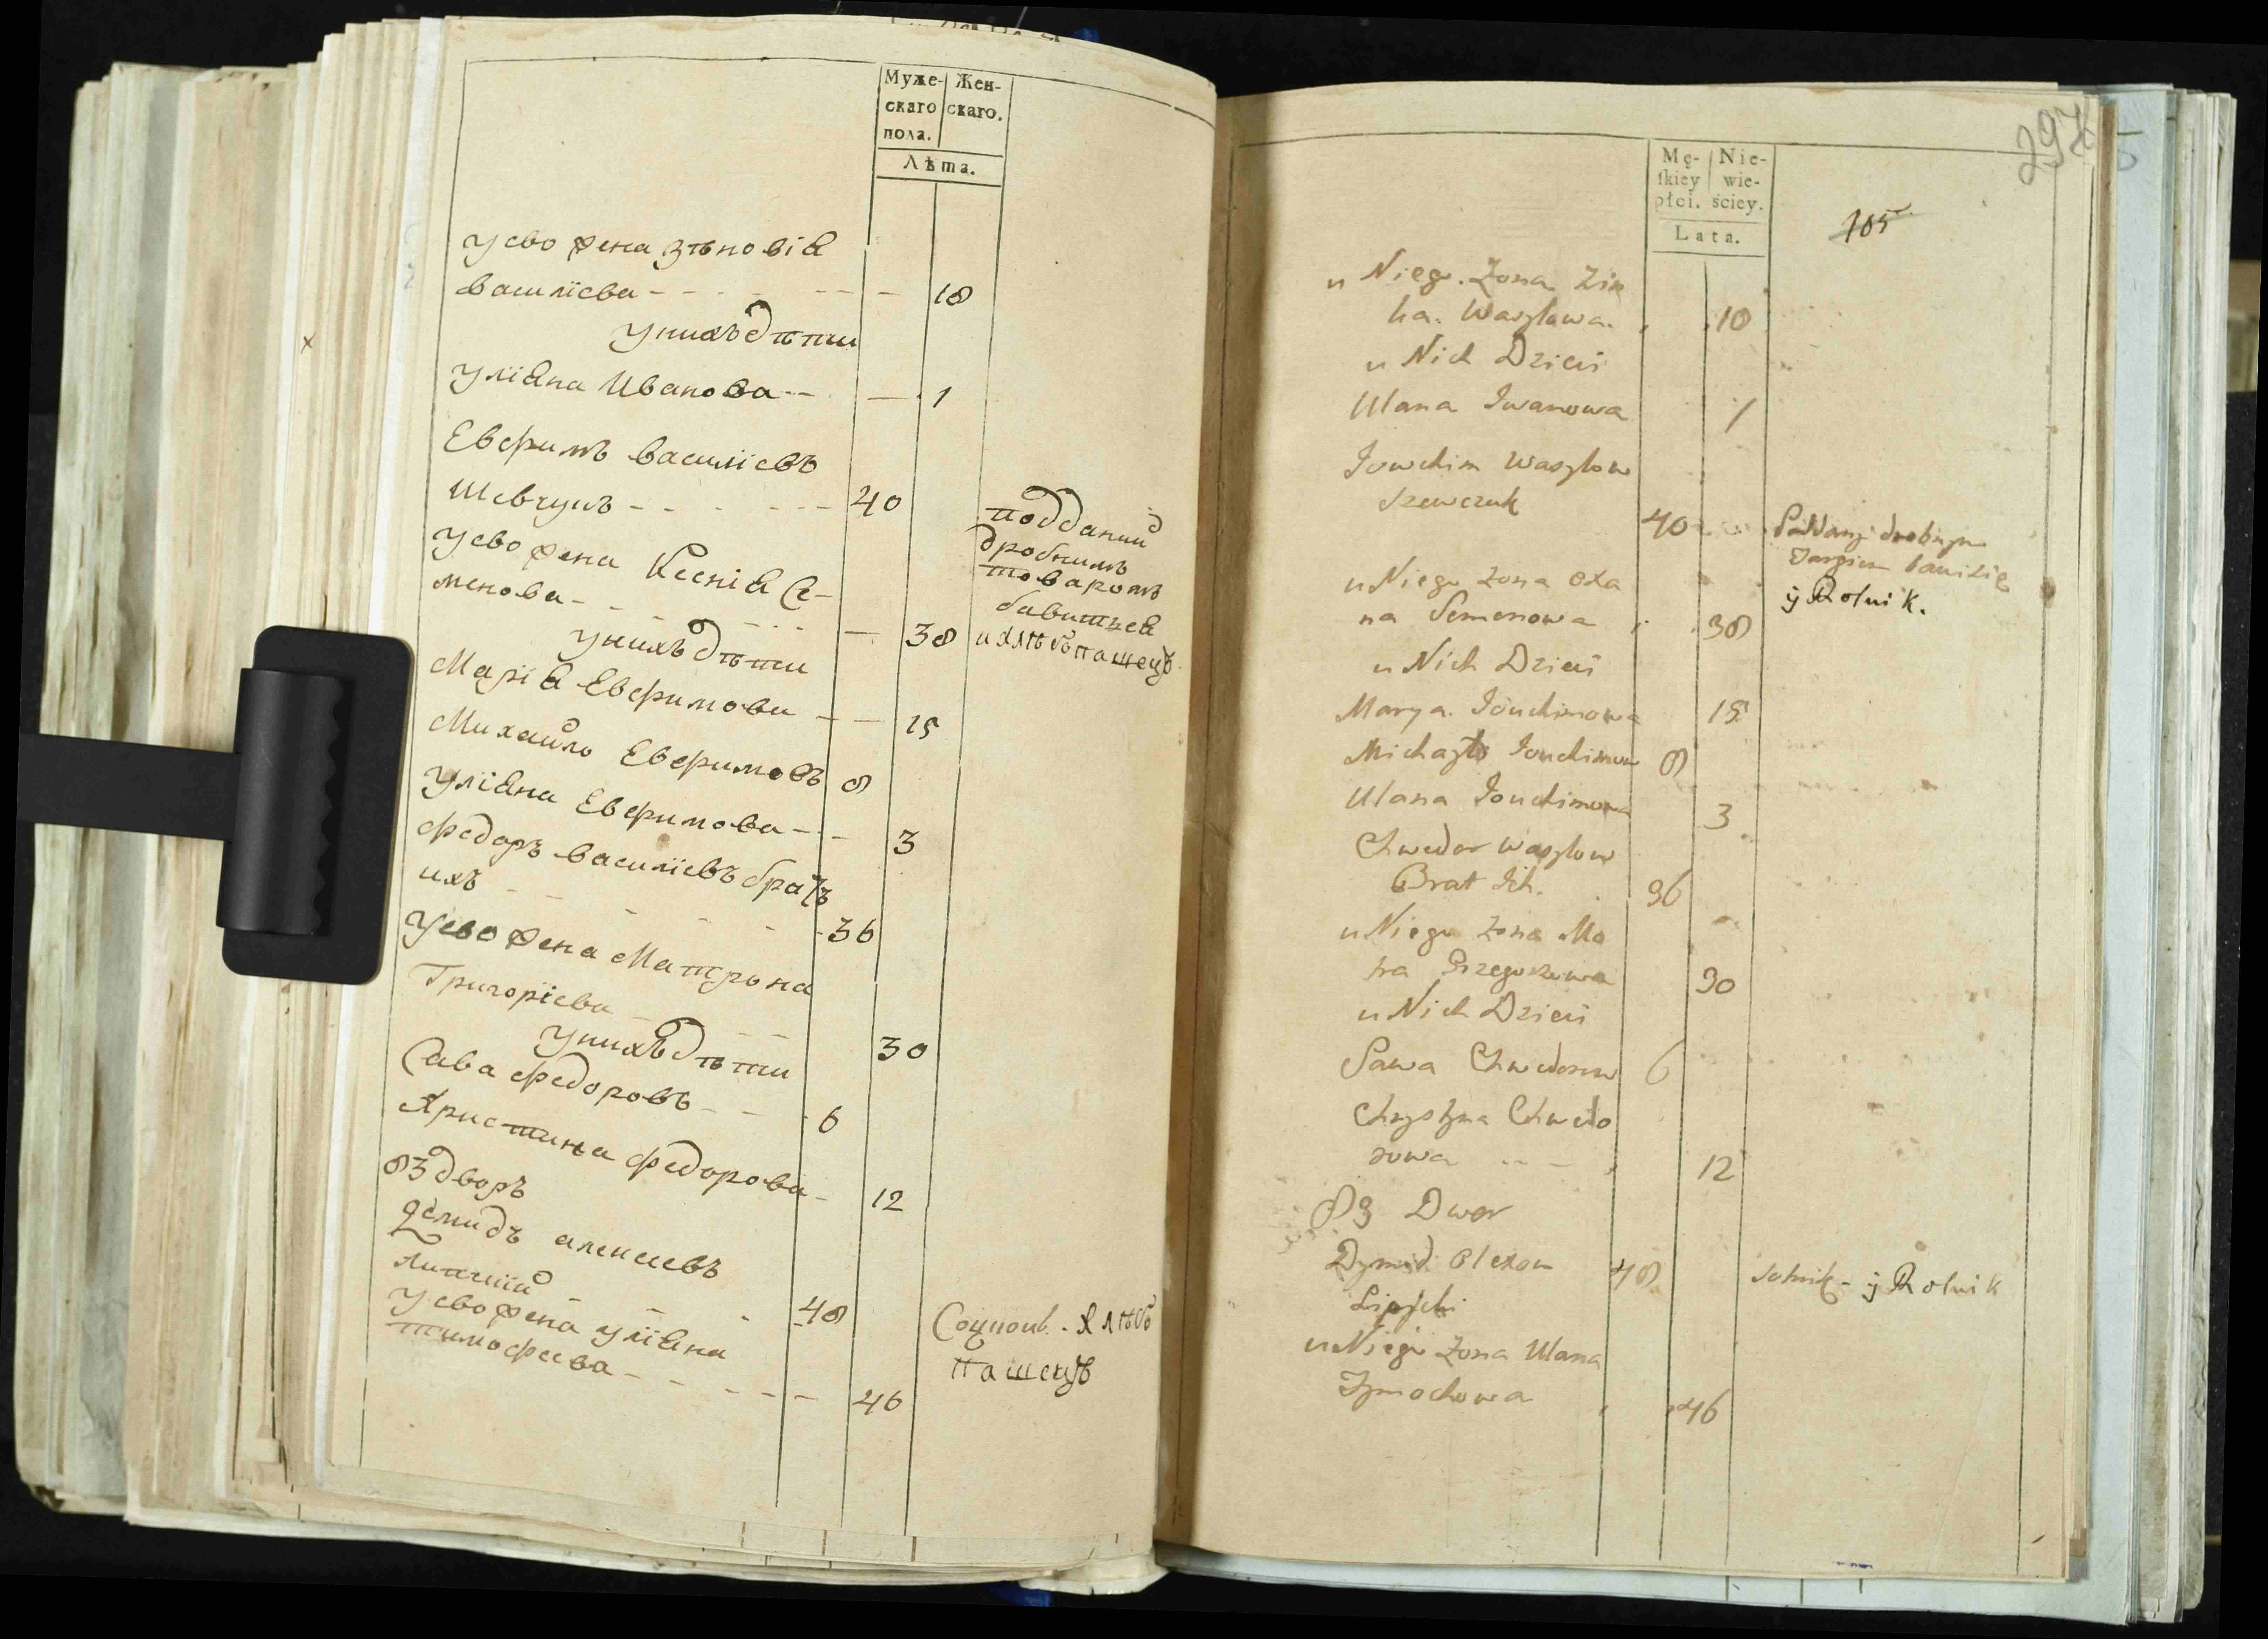 Муже-
скаго
пола.
Жен-
скаго.
Лѣта.
у ево жена зѣновіѧ
василіева - - - - - - 18
у нихъ дѣти
уліѧна Иванова - - 1
Евфимъ василіевъ
Шевчукъ - - - - - - 40
подданий
дробнимъ
товаромъ
бавитцеѧ
и хлѣбопашецъ
у ево жена Ксеніѧ Се-
менова - - - - - - 38
у нихъ дѣти
Маріѧ Евфимова - - 15
Михайло Евфимовъ 8
уліѧна Евфимова - - - 3
федоръ василіевъ братъ
ихъ - - - - - - 36
у ево жена Матрона
Григоріева - - - 30
у нихъ дѣти
Сава федоровъ - - - 6
Христина федорова - 12
83 дворъ
демидъ алексеевъ
липскій - - - 48
хлѣбо
пашецъ
у ево жена уліѧна
тимофеева - - - - - - 46
297
105
Mę-
skiey
płci.
Nie-
wie-
ściey.
Lata.
u Niego Zona Zin
ka Wasylowa. 18
u Nich Dzieci
Ulana Iwanowa 1
Iowchim Wasylow
Szewczuk 40
Poddany drobnym
Targiem bawi się
y Rolnik.
u Niego Zona Oxa
na Semenowa 38
u Nich Dzieci
Marya Iouchimowa 15
Michayło Iouchimow 8
Ulana Iouchimowa 3
Chwedor Wasylow
Brat Ich. 36
u Niego Zona Mo
tra Grzegorzowa 30
u Nich Dzieci
Sawa Chwedorow 6
Chrystyna Chwedo
rowa - - - 12
83 Dwor
Dymid Olexow 48
Lipski
y Rolnik
u Niego Zona Ulana
Tymochowa 46